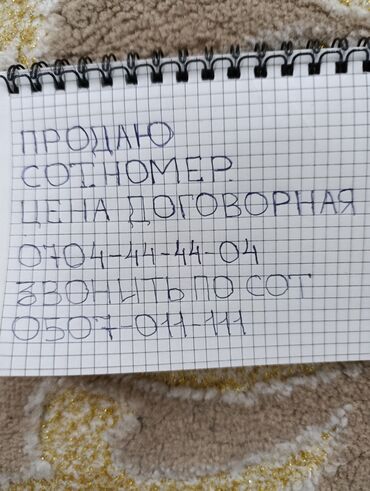 ПРОДАЮ
СОТ.НОМЕР
ЦЕНА ДОГОВОРНАЯ
0704-44-44-04
ЗВОНИТЬ ПО СОТ
0507-011-111